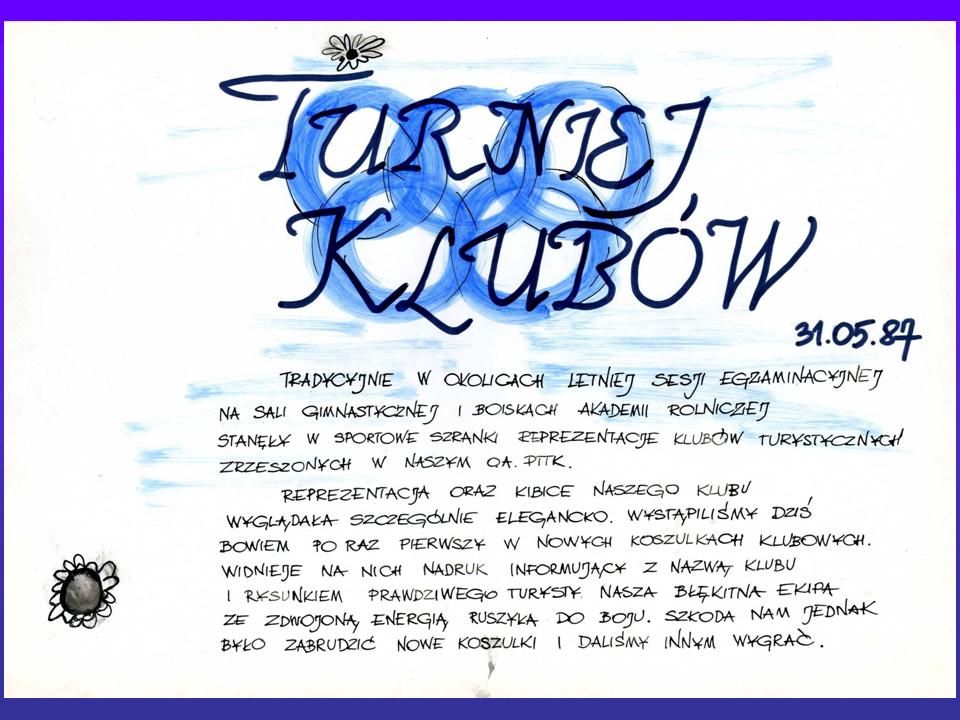 TURNIEJ
KLUBÓW
31.05.87
TRADYCYJNIE W OKOLICACH LETNIEJ SESJI EGZAMINACYJNEJ
NA SALI GIMNASTYCZNEJ I BOISKACH AKADEMII ROLNICZEJ
STANĘŁY W SPORTOWE SZRANKI REPREZENTACJE KLUBÓW TURYSTYCZNYCH
ZRZESZONYCH W NASZYM O.A. PTTK.
REPREZENTACJA ORAZ KIBICE NASZEGO KLUBU
WYGLĄDAŁA SZCZEGÓLNIE ELEGANCKO. WYSTĄPILIŚMY DZIŚ
BOWIEM PO RAZ PIERWSZY W NOWYCH KOSZULKACH KLUBOWYCH.
WIDNIEJE NA NICH NADRUK INFORMUJĄCY Z NAZWĄ KLUBU
I RYSUNKIEM PRAWDZIWEGO TURYSTY. NASZA BŁĘKITNA EKIPA
ZE ZDWOJONĄ ENERGIĄ RUSZYŁA DO BOJU. SZKODA NAM JEDNAK
BYŁO ZABRUDZIĆ NOWE KOSZULKI I DALIŚMY INNYM WYGRAĆ.